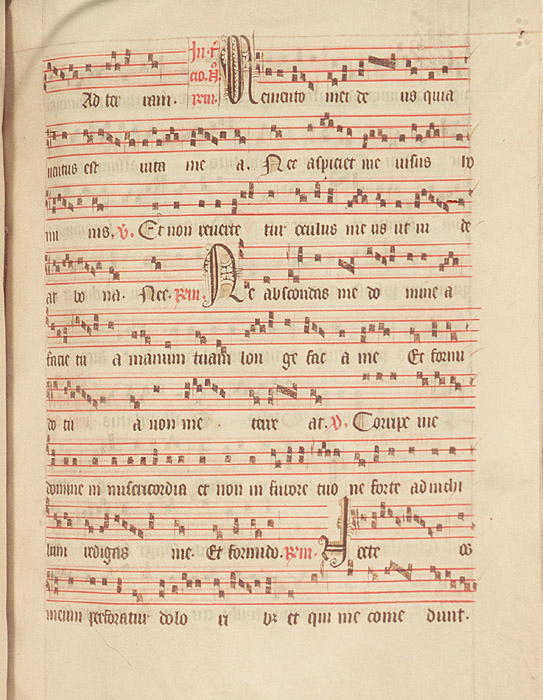 In·t͛
cio.Rͦ
Ad ter ram. ꝶeın. Memento mei de us quia
uentus est uita me a. Nec aspiciet me uisus ho
mi nis, V. Et non reuerte tur oculus me us ut ui de
at bo na. Nec. ꝶeın. Ne abscondas me do mine a
facie tu a manum tuam lon ge fac a me Et formi
do tu a non me terre at. V. Corripe me
domine in misericordia et non in furore tuo ne forte ad nichi
lum redigas me. Et formido. ꝶeın. Recte os
meum perforatur dolo ri bꝫ et qui me come dunt.